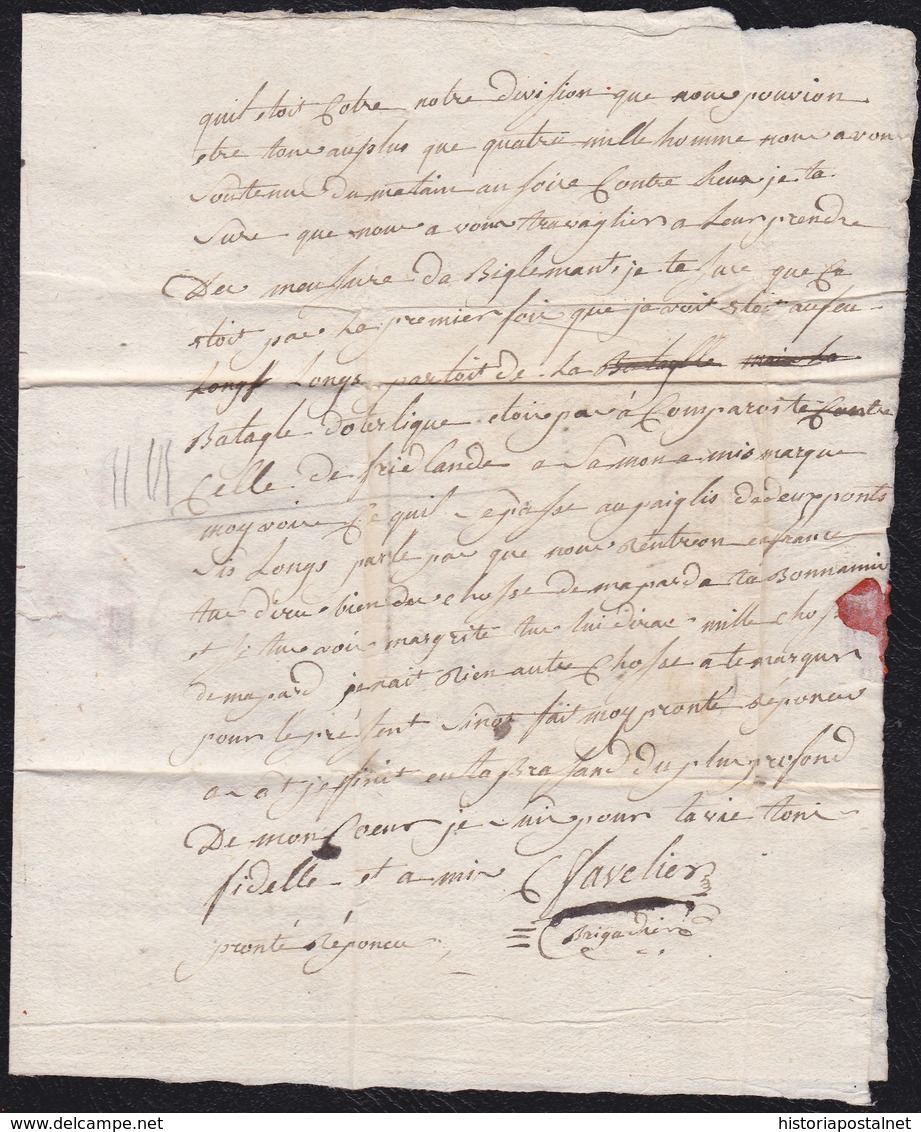 quil etoit Cotre notre division que nous pouvion
etre tous auplus que quatre mille homme nous avon
Soutenu du matain au soire Contre heux je ta
Sure que nous avons travaglier a Leur prendre
Des meusure da Biglemant, je ta sure que Ce
etoit pas La premier foir que javoit etoit aufeu
Longs Longs partoit de La Bataglle mais La
Batagle doterlique etoit pas á Comparoite Contre
Celle de friedlande a Sa mon amis marque
moy voir Ce quil Sepasse au paiglis dedeux ponts
Sis Longs parle pas que nous Rentreon enfrance
tu diras bien des chosse de ma parda ta Bonnamis
et si tu voir margrite tu lui diras mille chos
de mapard jenait Rien autre Chosse a te marquer
pour le présent Sinot fait moy pronté Réponce
a at jeffinit en taBrasand du plus profond
De mon Coeur je suis pour ta vie tons
fidelle et amis Favelier
Brigadier
pronté Réponce
historiapostalnet
historiapostalnet